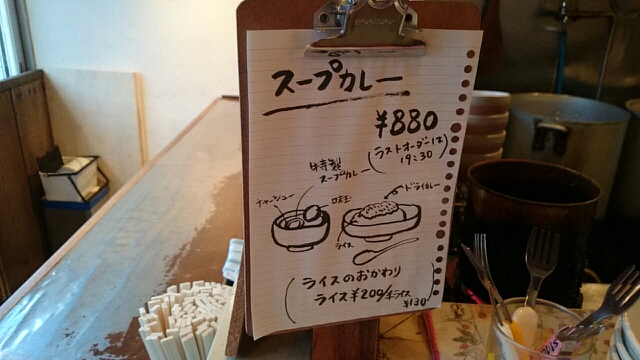 スープカレー
¥880
(ラストオーダーは
19:30)
特製
スープカレー
チャーシュー
味玉
ドライカレー
ライス
(ライスのおかわり
ライス¥200/半ライス
¥130)